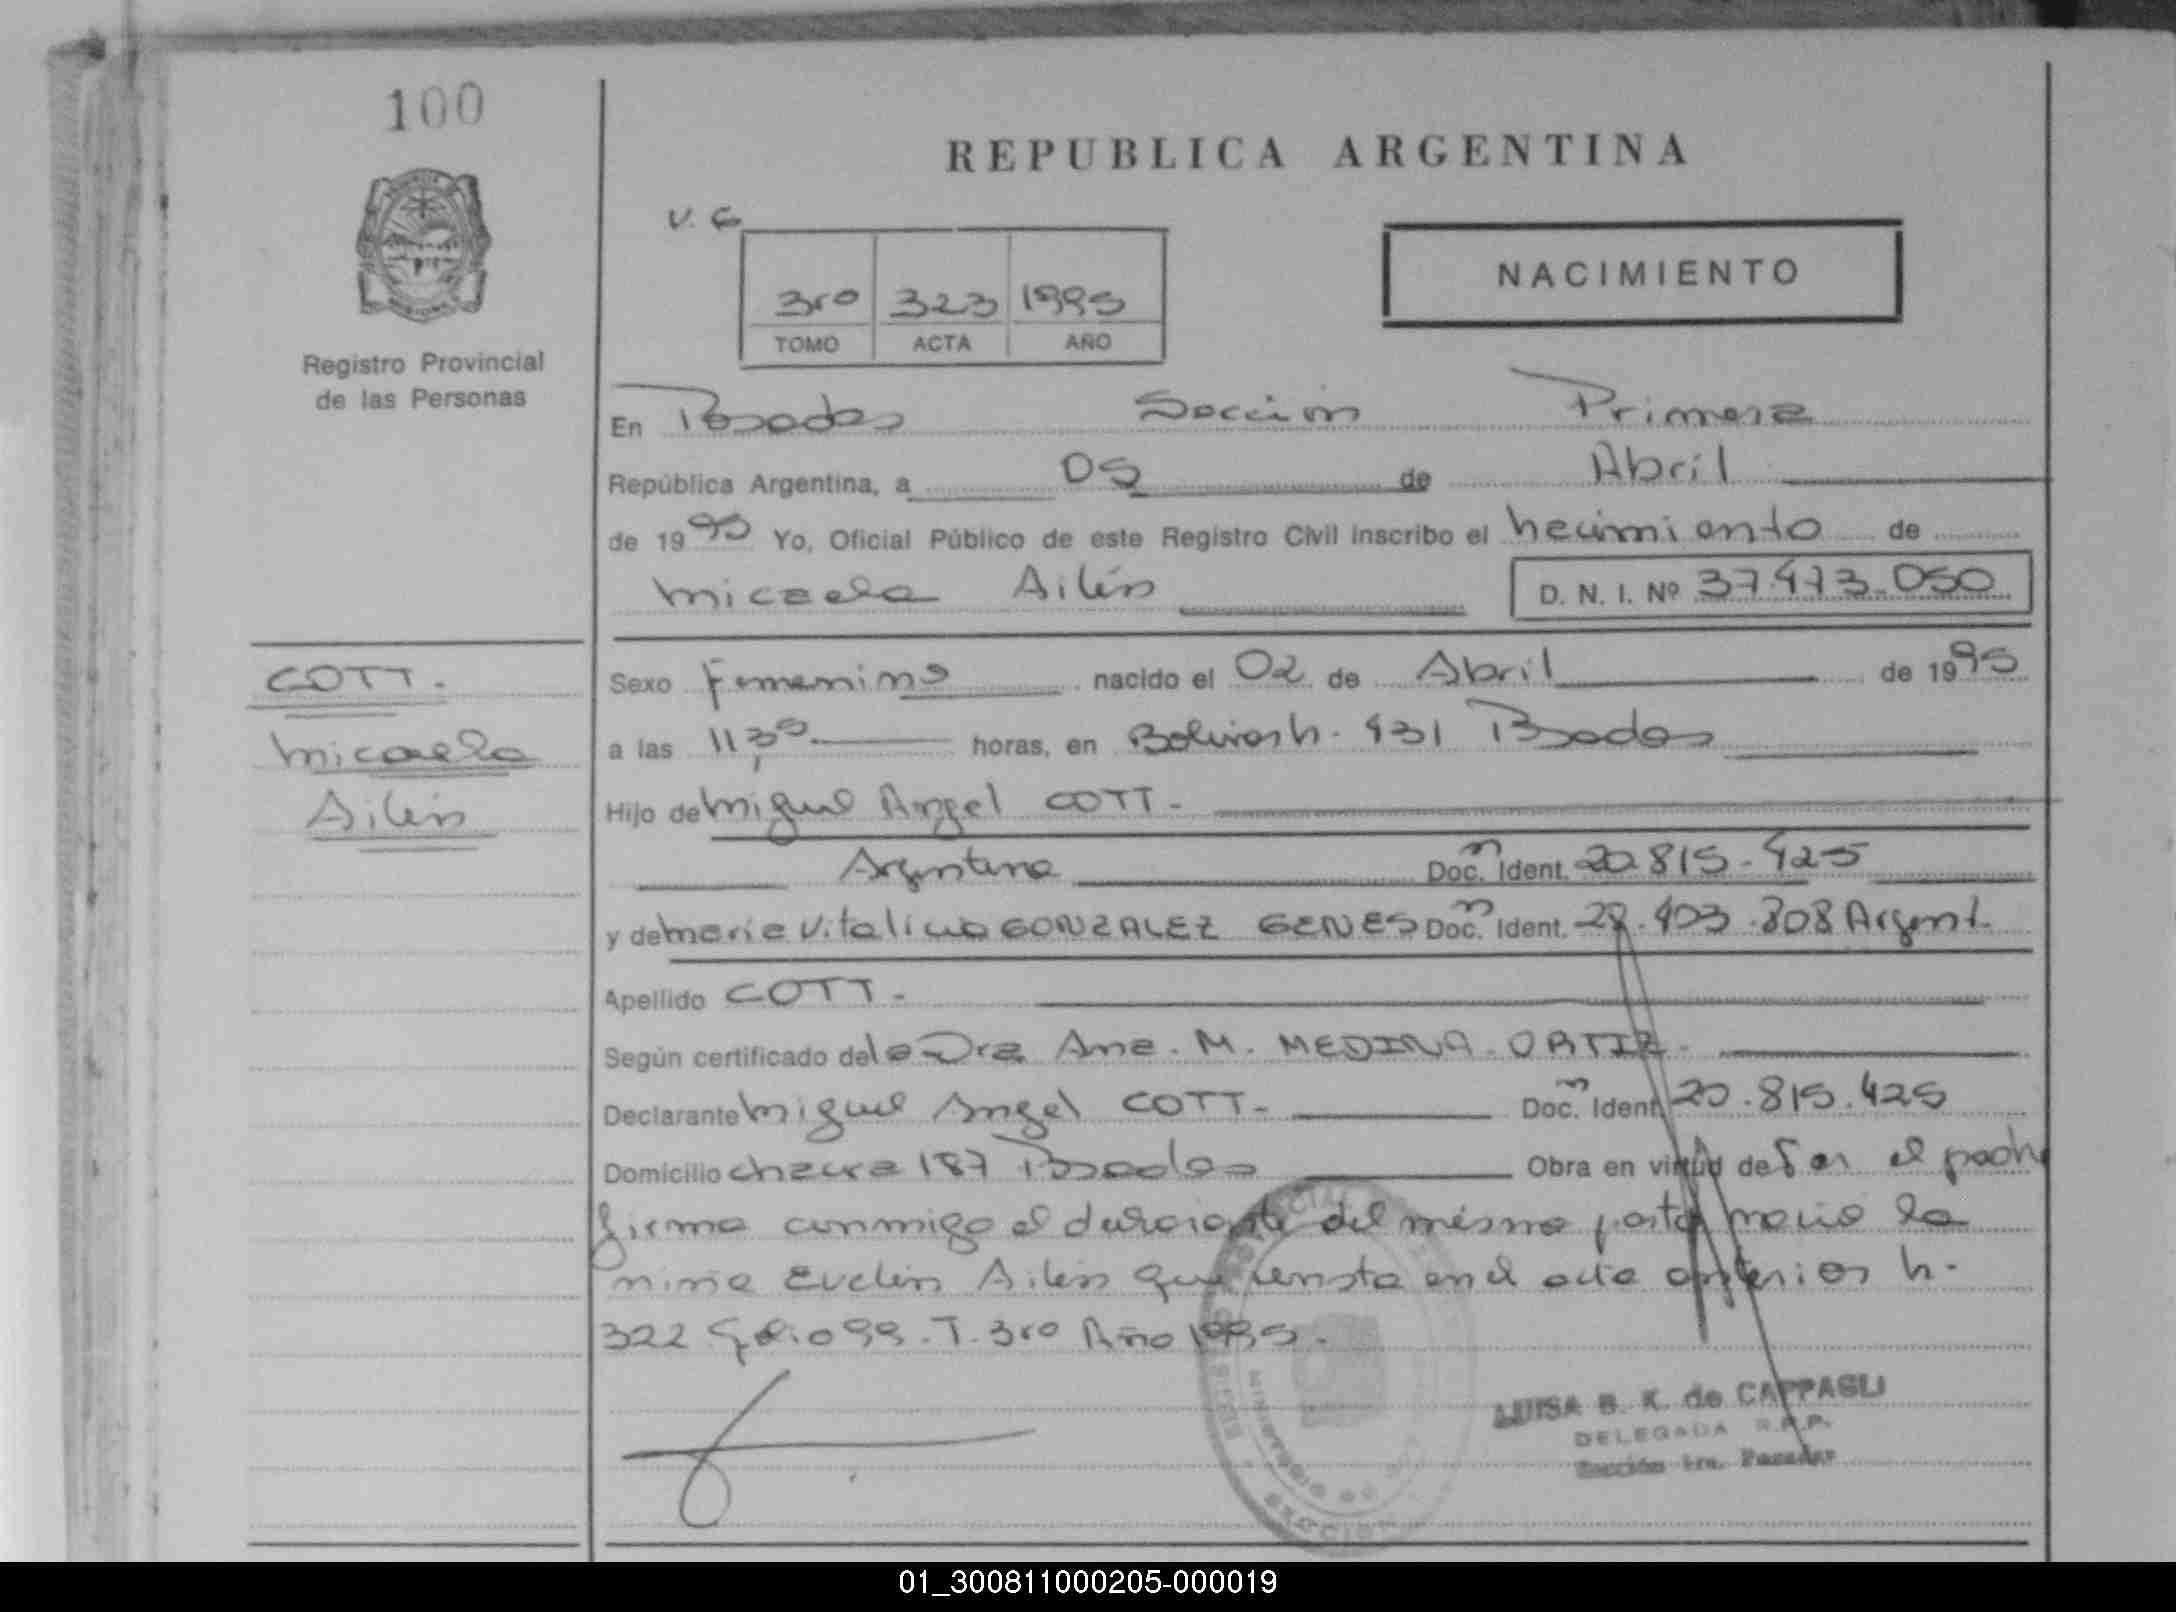 100
REPUBLICA ARGENTINA
V. G
3ro 323 1995
TOMO ACTA AÑO
NACIMIENTO
Registro Provincial
de las Personas
En Posadas Sección Primera
República Argentina, a 05 de Abril
de 1995 Yo, Oficial Público de este Registro Civil inscribo el nacimiento de
Micaela Ailén D. N. I. Nº 37.473.050
COTT.
Micaela
Ailén
Sexo Femenino nacido el 02 de Abril de 1995
a las 11,35 horas, en Bolivar N. 431 Posadas
Hijo de Miguel Angel COTT.
Argentino Doc. n Ident. 20.815.425
y de Maria Vitalicia GONZALEZ GENES Doc. n Ident. 403.808 Argent.
Apellido COTT.
Según certificado de la Dra Ana. M. MEDINA ORTIZ.
Declarante Miguel Angel COTT. Doc. n Ident. 20.815.425
Domicilio chacra 187 Posadas Obra en virtud de Ser el padre
firma conmigo el declarante del mismo parto nació la
niña Evelin Ailén que consta en el acta anterior N.
322 Folio 99. T. 3ro Año 1995.
LUISA B. K. de CAPPAGLI
DELEGADA R.P.P.
Sección 1ra. Posadas
01_300811000205-000019